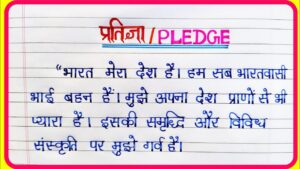 प्रतिज्ञा/PLEDGE
“भारत मेरा देश है। हम सब भारतवासी
भाई बहन हैं। मुझे अपना देश प्राणों से भी
प्यारा है। इसकी समृद्धि और विविध
संस्कृति पर मुझे गर्व है।